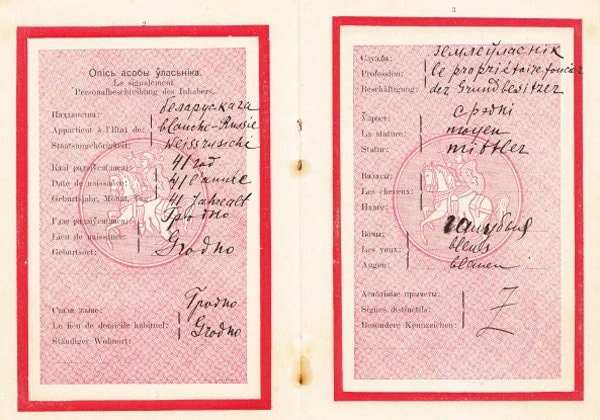 2
Опісь асобы ўласьніка.
Le signalement.
Personalbeschreibung des Inhabers.
беларуская
Appartient à l'État de: blanche-Russie
Staatsangehörigkeit: weissrusische
41 год
Date de naissance: 41 l'année
Geburtsjahr, Monat, Tag: 41 Jahre alt
Гродно
Lieu de naissance:
Geburtsort: Grodno
Гродно
Le lieu de domicile habituel: Grodno
Ständiger Wohnort:
3
Служба: землеўласнік
Profession: le propriétaire foncier
Beschäftigung: der Grundbesitzer
Харост: срэдні
La stature: moyen
Statur: mittler
Валасы:
Les cheveux:
Haare:
Вочы:
Les yeux: bleus
Augen: blauen
Асаблівые прыметы:
Signes distinctifs:
Besondere Kennzeichen: